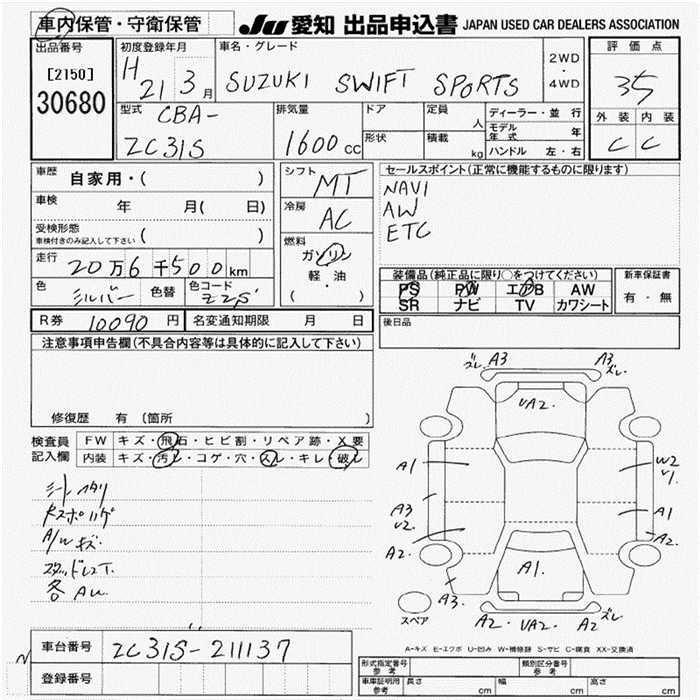 車内保管・守衛保管 JU 愛知 出品申込書 JAPAN USED CAR DEALERS ASSOCIATION
出品番号 初度登録年月 車名・グレード 2WD・4WD 評価点
[2150] H 21 3月 SUZUKI SWIFT SPORTS 35
30680
型式 CBA- 排気量 ドア 定員 人 ディーラー・並行 外装 内装
ZC31S 1600 CC 形状 積載 kg モデル年式 年 C C
ハンドル 左・右
車歴 自家用・( ) シフト MT セールスポイント(正常に機能するものに限ります)
車検 年 月( 日) 冷房 AC NAVI
AW
受検形態 ( ) ETC
車検付きのみ記入して下さい
走行 20万6千500km 燃料 ガソリン
軽・油
( )
色 シルバー 色替 色コード Z2S
装備品(純正品に限り○をつけてください) 新車保証書
PS PW エアB AW 有・無
SR ナビ TV カワシート
R券 10090円 名変通知期限 月 日 後日品
注意事項申告欄(不具合内容等は具体的に記入して下さい)
修復歴 有 (箇所 )
検査員記入欄 FW キズ・飛石・ヒビ割・リペア跡・X要
内装 キズ・汚レ・コゲ・穴・スレ・キレ・破レ
シートヘタリ
A/W キズ
スタッドレスT
各 AU
ズレ A3 A3 ズレ
UA2
A1 W2
U1
A3 A1
U2
A2 A2
A1
A3 A2 UA2 A2 ズレ
スペア
A-キズ E-エクボ U-凹み W-補修跡 S-サビ C-腐食 XX-交換済
車台番号 ZC31S-211137
登録番号
形式指定番号 参考 類別区分番号 参考
車庫証明用 参考 長さ cm 幅 cm 高さ cm